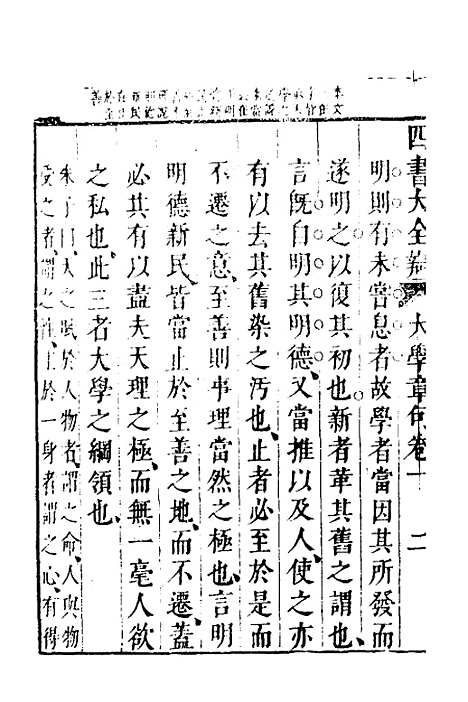 四書大全 大學章句卷一 二
明則有未嘗息者故學者當因其所發而
遂明之以復其初也新者革其舊之謂也
言旣自明其明德又當推以及人使之亦
有以去其舊染之汚也止者必至於是而
不遷之意至善則事理當然之極也言明
明德新民皆當止於至善之地而不遷蓋
必其有以盡夫天理之極而無一毫人欲
之私也此三者大學之綱領也
朱子曰天之賦於人物者謂之命人與物
受之者謂之性主於一身者謂之心有得